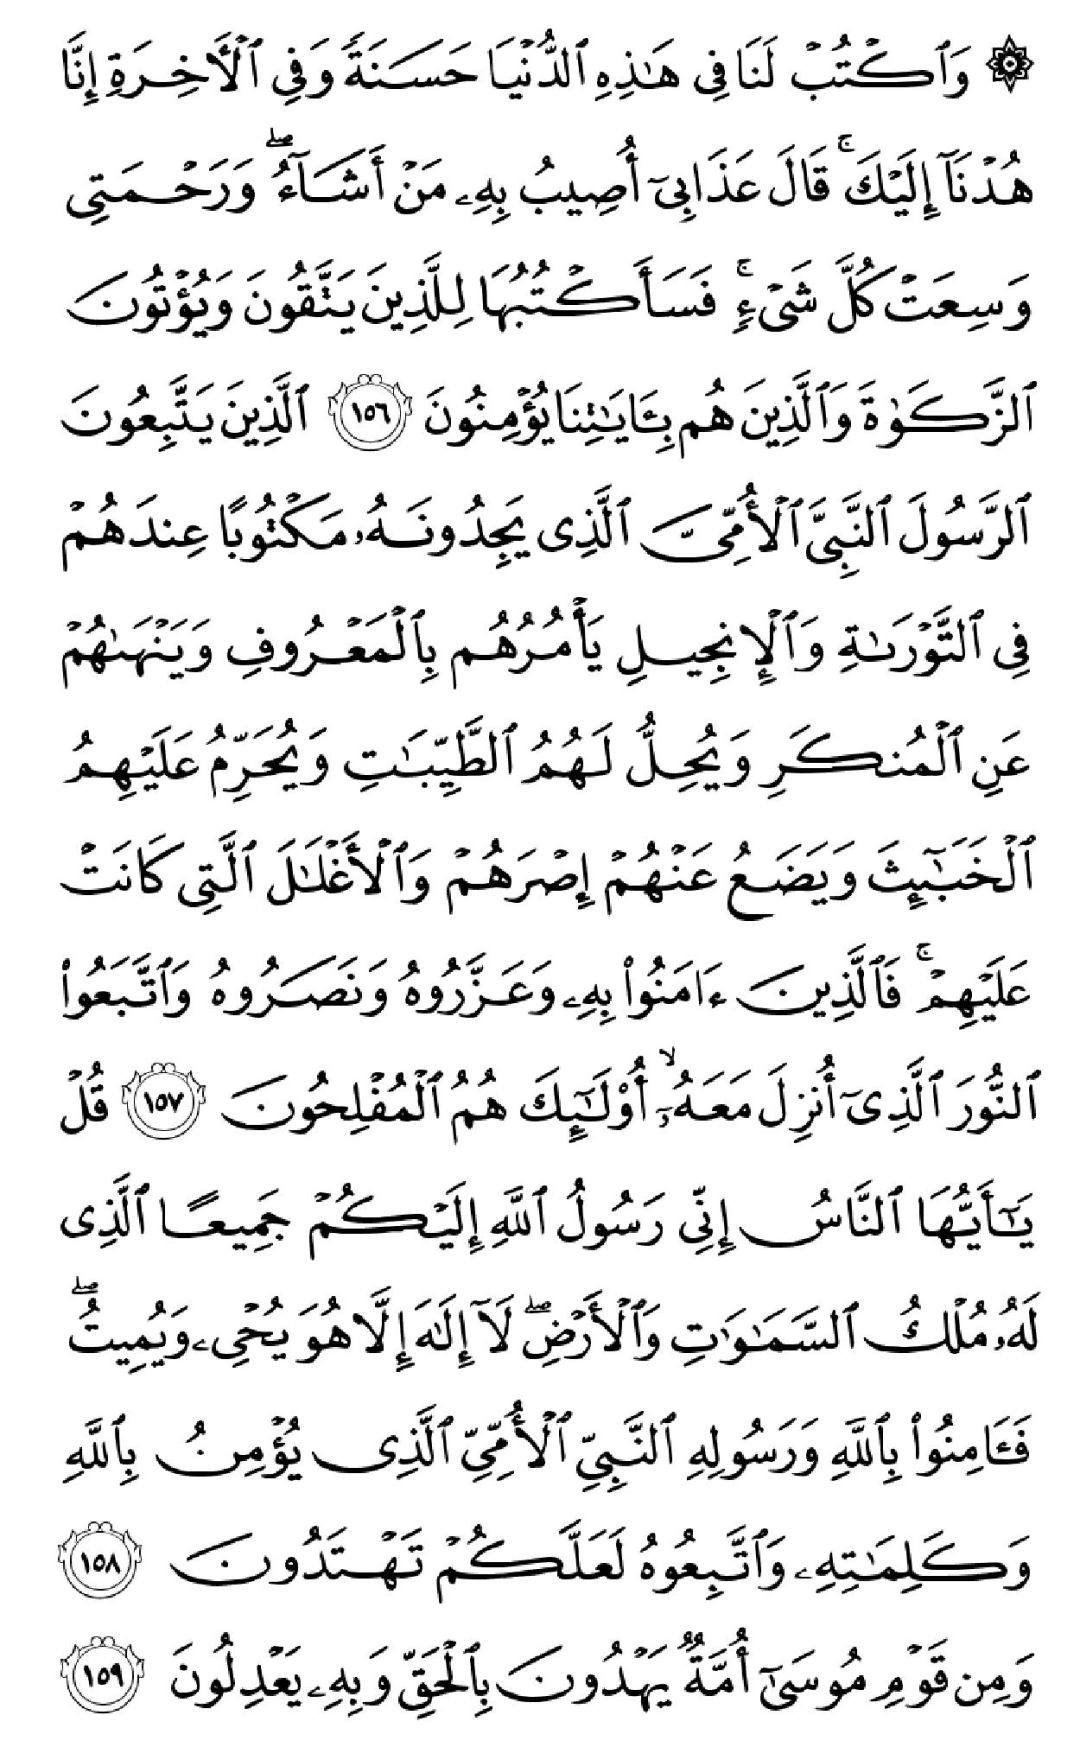 ۞ وَٱكۡتُبۡ لَنَا فِي هَٰذِهِ ٱلدُّنۡيَا حَسَنَةٗ وَفِي ٱلۡأٓخِرَةِ إِنَّا
هُدۡنَآ إِلَيۡكَۚ قَالَ عَذَابِيٓ أُصِيبُ بِهِۦ مَنۡ أَشَآءُۖ وَرَحۡمَتِي
وَسِعَتۡ كُلَّ شَيۡءٖۚ فَسَأَكۡتُبُهَا لِلَّذِينَ يَتَّقُونَ وَيُؤۡتُونَ
ٱلزَّكَوٰةَ وَٱلَّذِينَ هُم بِـَٔايَٰتِنَا يُؤۡمِنُونَ ١٥٦ ٱلَّذِينَ يَتَّبِعُونَ
ٱلرَّسُولَ ٱلنَّبِيَّ ٱلۡأُمِّيَّ ٱلَّذِي يَجِدُونَهُۥ مَكۡتُوبًا عِندَهُمۡ
فِي ٱلتَّوۡرَىٰةِ وَٱلۡإِنجِيلِ يَأۡمُرُهُم بِٱلۡمَعۡرُوفِ وَيَنۡهَىٰهُمۡ
عَنِ ٱلۡمُنكَرِ وَيُحِلُّ لَهُمُ ٱلطَّيِّبَٰتِ وَيُحَرِّمُ عَلَيۡهِمُ
ٱلۡخَبَٰٓئِثَ وَيَضَعُ عَنۡهُمۡ إِصۡرَهُمۡ وَٱلۡأَغۡلَٰلَ ٱلَّتِي كَانَتۡ
عَلَيۡهِمۡۚ فَٱلَّذِينَ ءَامَنُواْ بِهِۦ وَعَزَّرُوهُ وَنَصَرُوهُ وَٱتَّبَعُواْ
ٱلنُّورَ ٱلَّذِيٓ أُنزِلَ مَعَهُۥٓۙ أُوْلَٰٓئِكَ هُمُ ٱلۡمُفۡلِحُونَ ١٥٧ قُلۡ
يَٰٓأَيُّهَا ٱلنَّاسُ إِنِّي رَسُولُ ٱللَّهِ إِلَيۡكُمۡ جَمِيعًا ٱلَّذِي
لَهُۥ مُلۡكُ ٱلسَّمَٰوَٰتِ وَٱلۡأَرۡضِۖ لَآ إِلَٰهَ إِلَّا هُوَ يُحۡيِۦ وَيُمِيتُۖ
فَـَٔامِنُواْ بِٱللَّهِ وَرَسُولِهِ ٱلنَّبِيِّ ٱلۡأُمِّيِّ ٱلَّذِي يُؤۡمِنُ بِٱللَّهِ
وَكَلِمَٰتِهِۦ وَٱتَّبِعُوهُ لَعَلَّكُمۡ تَهۡتَدُونَ ١٥٨
وَمِن قَوۡمِ مُوسَىٰٓ أُمَّةٞ يَهۡدُونَ بِٱلۡحَقِّ وَبِهِۦ يَعۡدِلُونَ ١٥٩